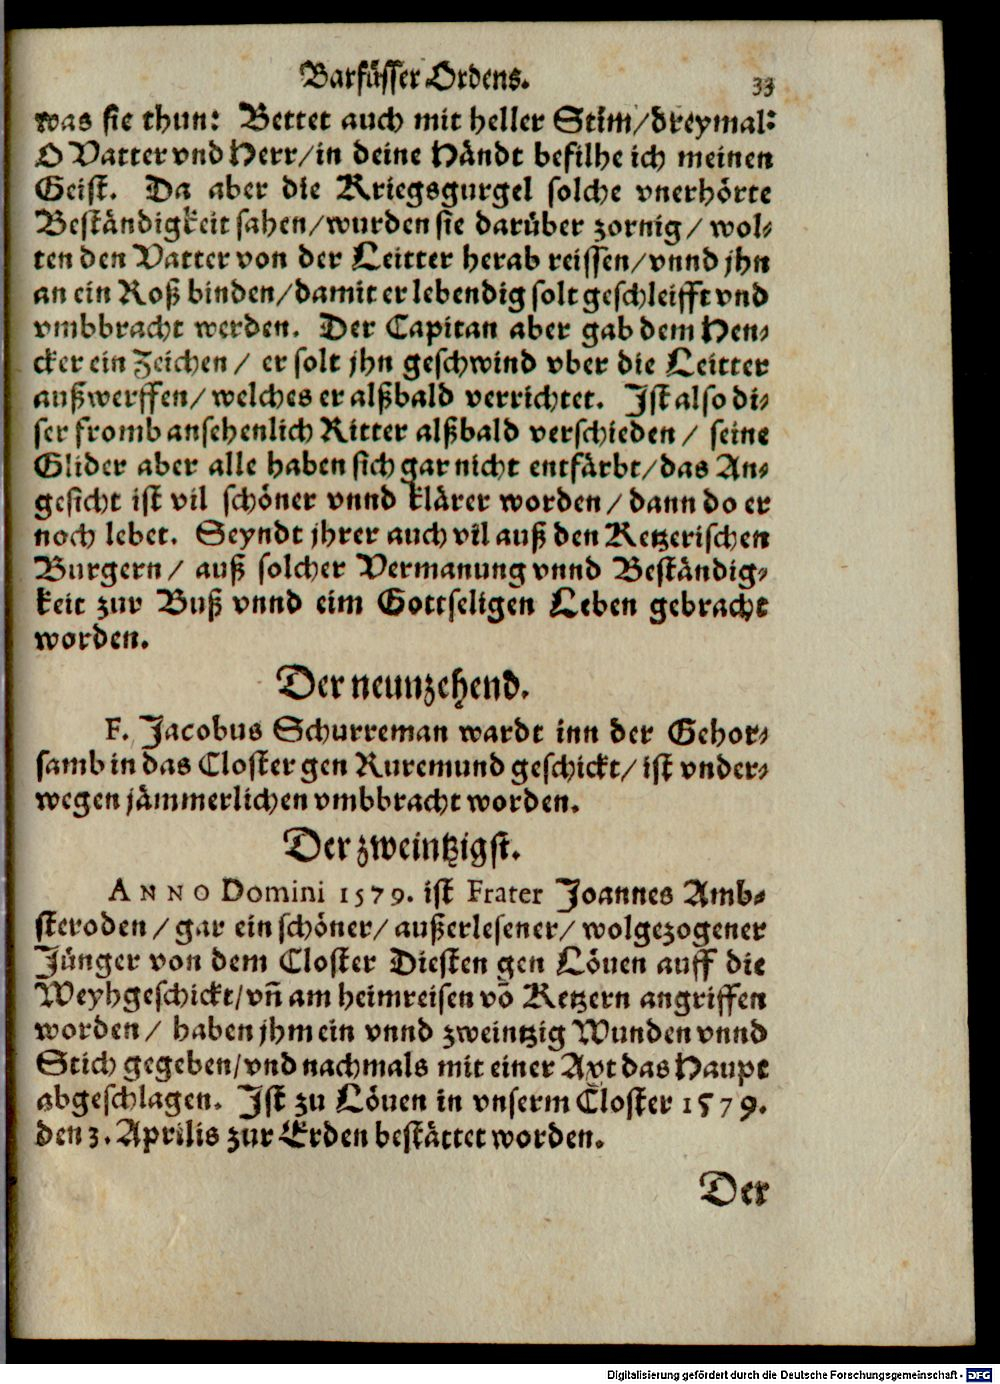 Barfüsser Ordens. 33
was sie thun: Bettet auch mit heller Stim̃/dreymal:
O Vatter vnd Herr/in deine Händt befilhe ich meinen
Geist. Da aber die Kriegsgurgel solche vnerhörte
Beständigkeit sahen/wurden sie darüber zornig/ wol-
ten den Vatter von der Leitter herab reissen/vnnd jhn
an ein Roß binden/damit er lebendig solt geschleifft vnd
vmbbracht werden. Der Capitan aber gab dem Hen-
cker ein Zeichen/ er solt jhn geschwind vber die Leitter
außwerffen/welches er alßbald verrichtet. Ist also di-
ser fromb ansehenlich Ritter alßbald verschieden/ seine
Glider aber alle haben sich gar nicht entfärbt/das An-
gesicht ist vil schöner vnnd klärer worden/dann do er
noch lebet. Seyndt jhrer auch vil auß den Ketzerischen
Burgern/ auß solcher Vermanung vnnd Beständig-
keit zur Buß vnnd eim Gottseligen Leben gebracht
worden.
Der neunzehend.
F. Jacobus Schurreman wardt inn der Gehor-
samb in das Closter gen Ruremund geschickt/ ist vnder-
wegen jämmerlichen vmbbracht worden.
Der zweintzigst.
ANNO Domini 1579. ist Frater Joannes Amb-
steroden/gar ein schöner/außerlesener/wolgezogener
Jünger von dem Closter Diesten gen Löuen auff die
Weyh geschickt/vñ am heimreisen võ Ketzern angriffen
worden/ haben jhm ein vnnd zweintzig Wunden vnnd
Stich gegeben/vnd nachmals mit einer Axt das Haupt
abgeschlagen. Ist zu Löuen in vnserm Closter 1579.
den 3. Aprilis zur Erden bestättet worden.
Der
Digitalisierung gefördert durch die Deutsche Forschungsgemeinschaft - DFG